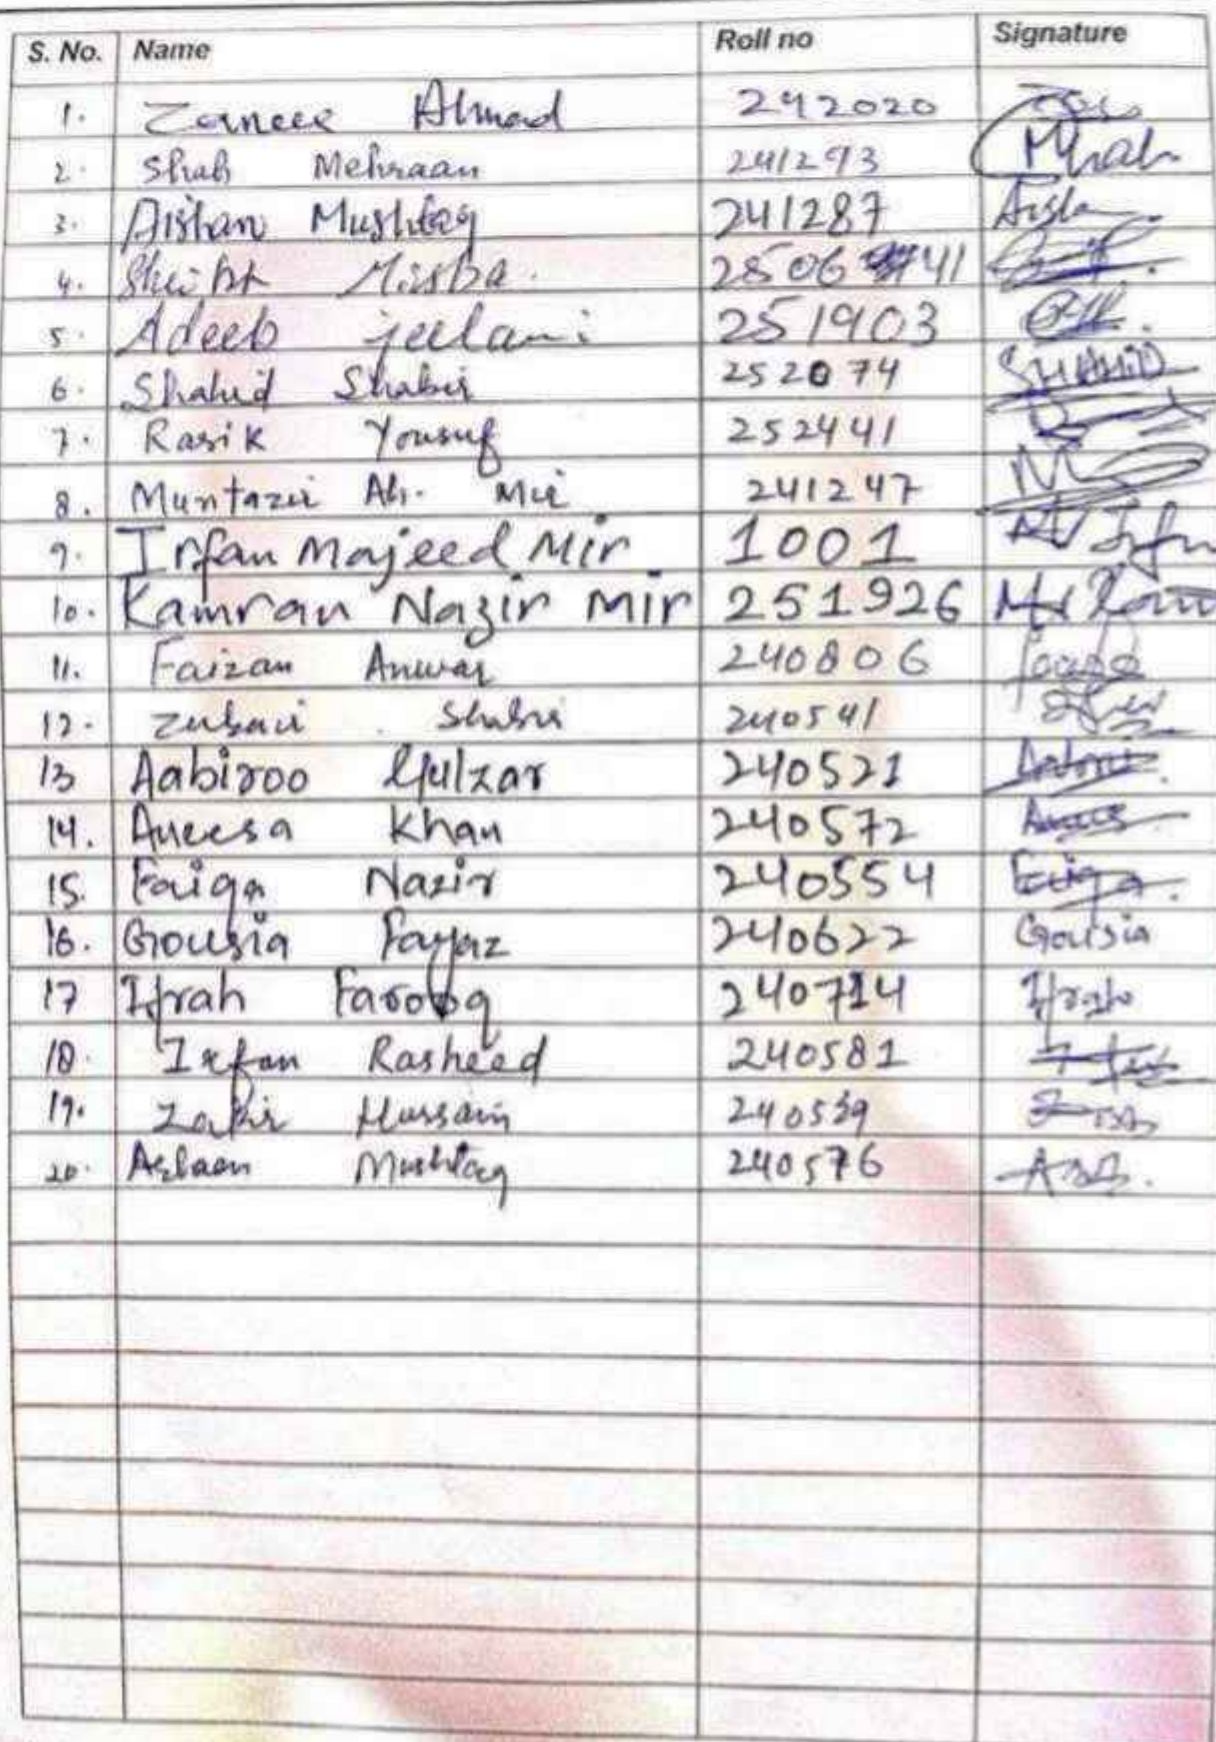 S. No. Name Roll no Signature
1. Zaneer Ahmad 242020
2. Shah Mehraan 241293
3. Aishan Mushtaq 241287 Aisha
4. Misba 2506 41
5. Adeeb jeelani 251903
6. Shahid Shabir 252074 SHAHID
7. Rasik Yousuf 252441
8. Muntazir Ah. Mir 241247
9. Irfan Majeed Mir 1001 Irfn
10. Kamran Nazir Mir 251926
11. Faizan Anwar 240806
12. Zubair Shabir 240541
13 Aabiroo Gulzar 240521
14. Aneesa Khan 240572
15. Faiqa Nazir 240554 Faiqa
16. Gousia Fayaz 240622 Gousia
17 Ifrah Farooq 240714 Ifrah
18. Irfan Rasheed 240581
19. Zakir Hussain 240539
20. Mushtaq 240576